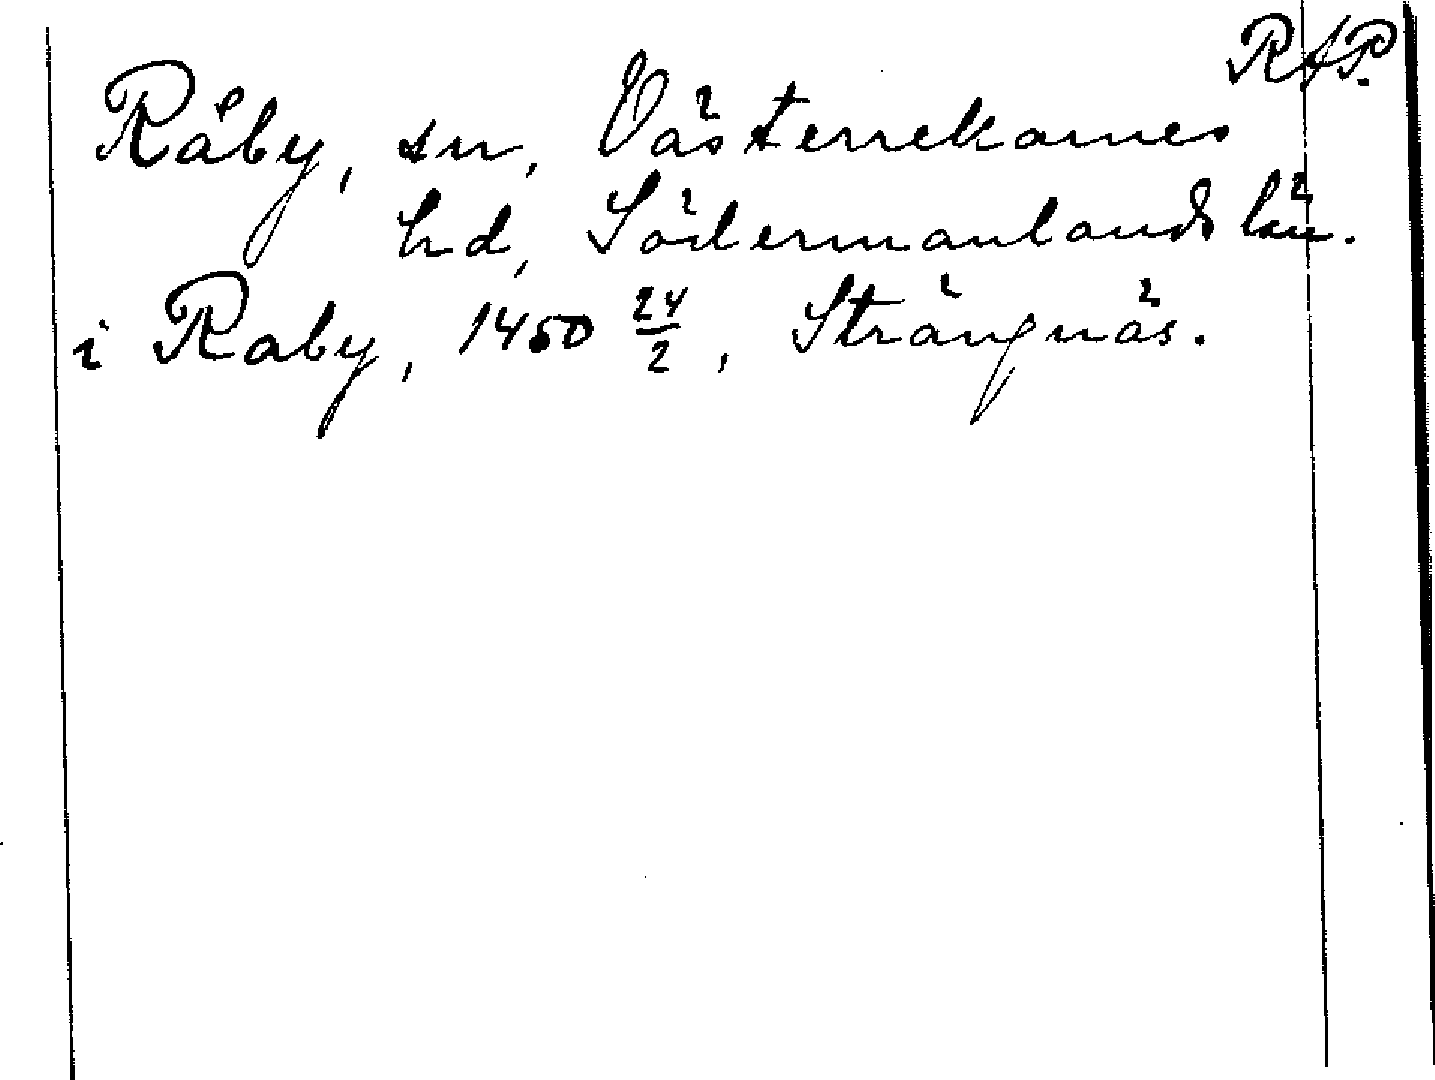 RAP.
Råby, sn, Västerrekarnes
hd, Södermanlands län.
i Raby, 1450 24/2, Strängnäs.